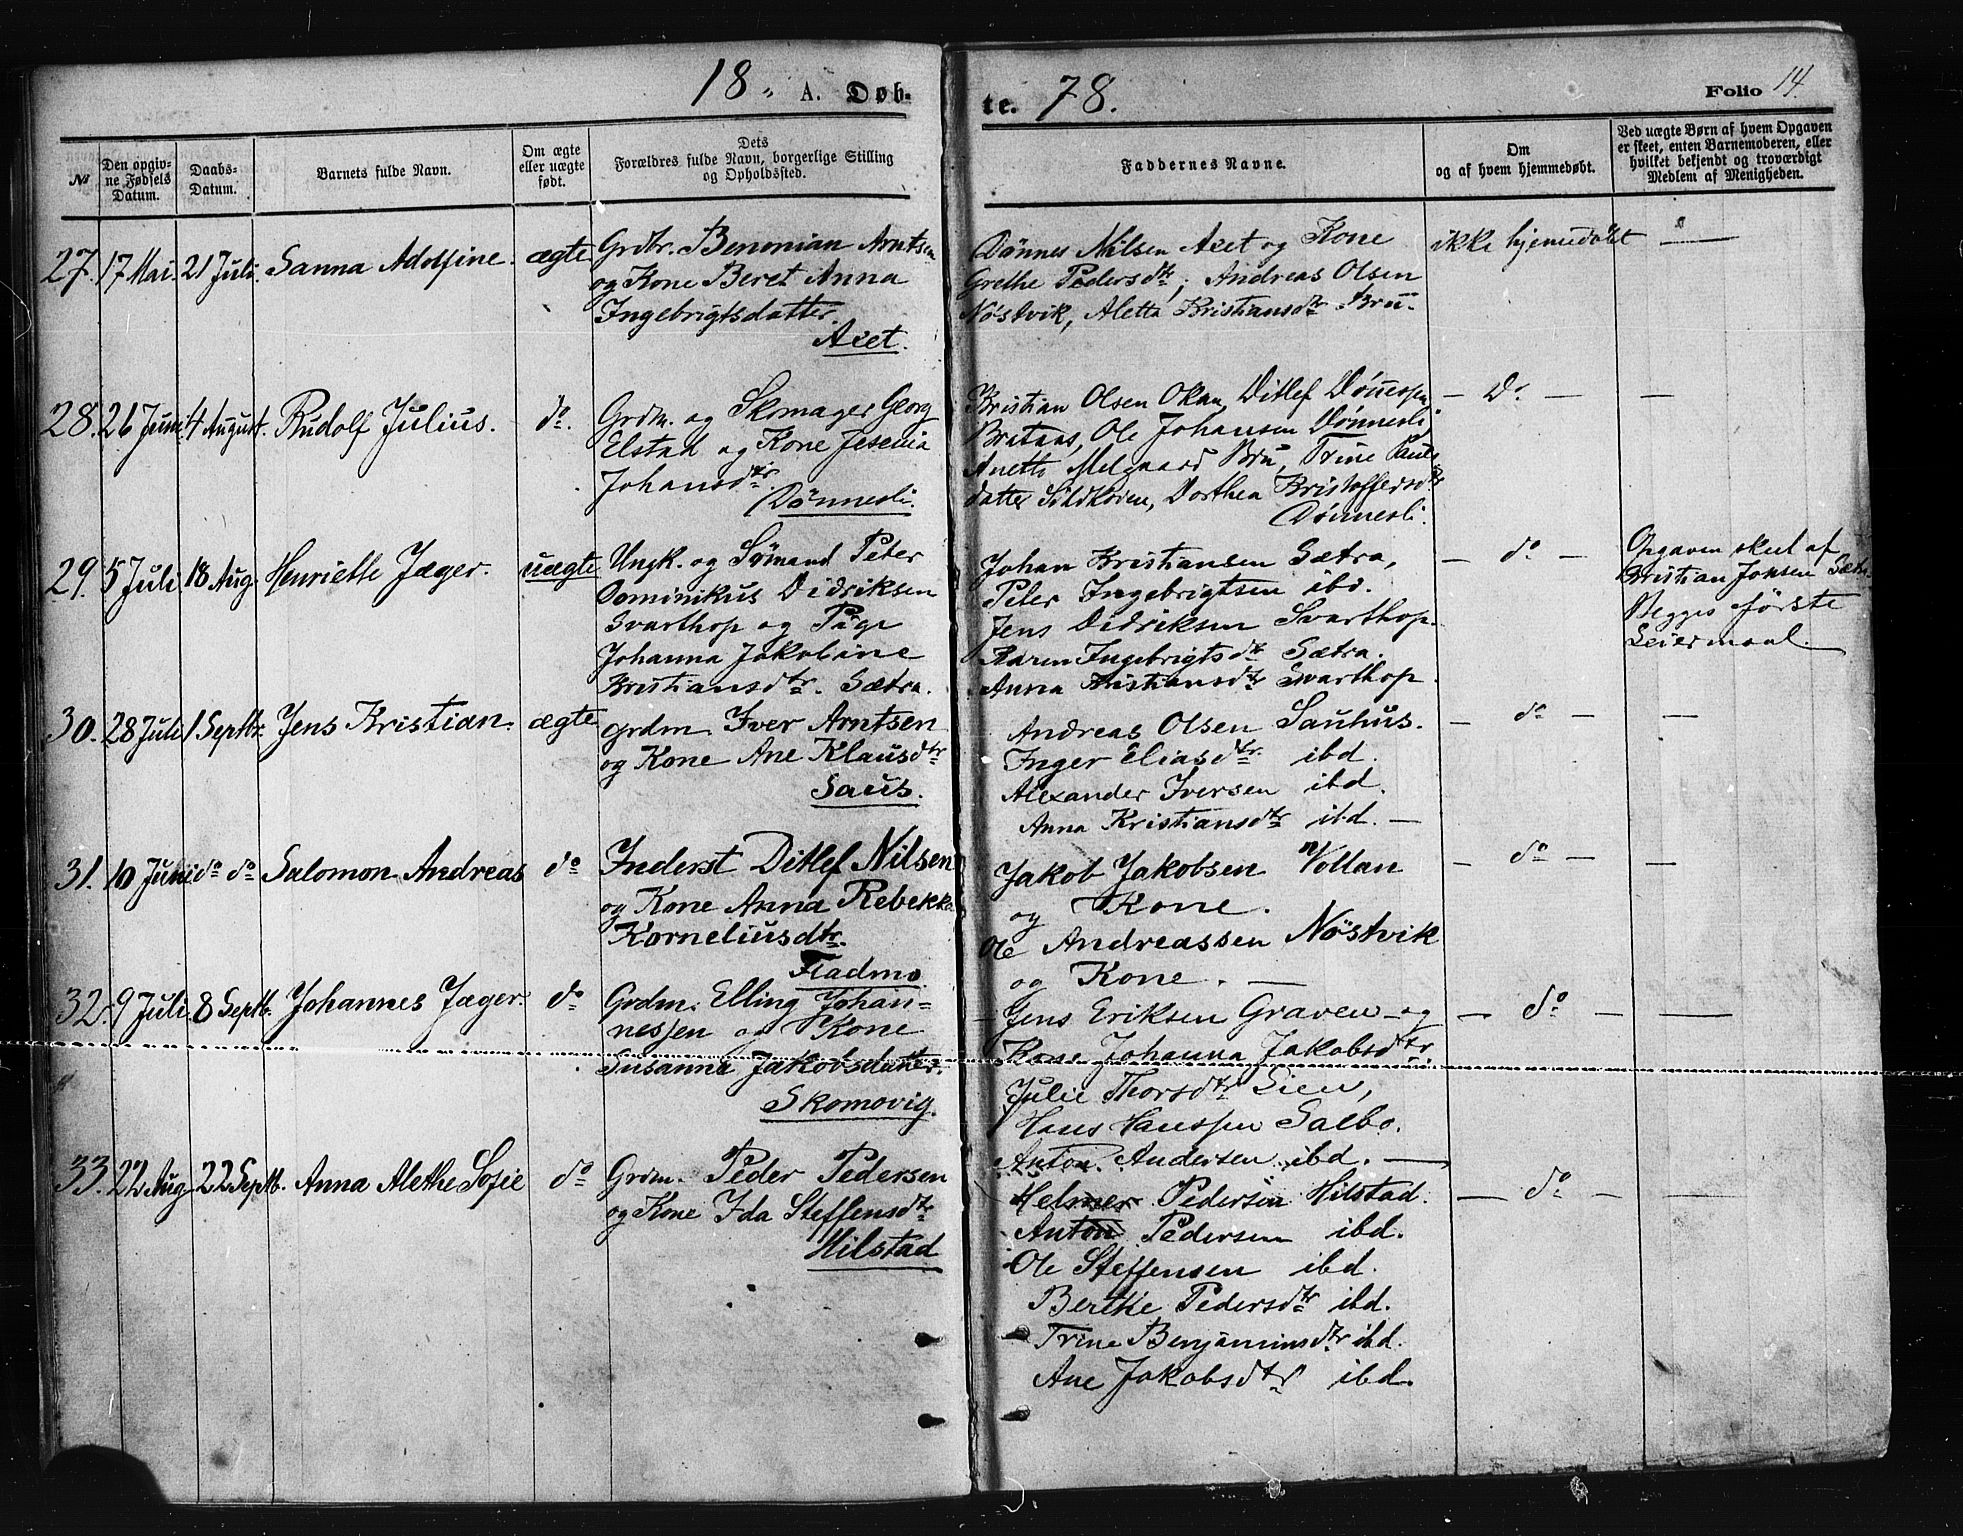 18 A. Døb-
№
Den opgivne Fødsels Datum.
Daabs-Datum.
Barnets fulde Navn.
Om ægte eller uægte født.
Dets Forældres fulde Navn, borgerlige Stilling og Opholdssted.
27. 17 Mai. 21 Juli. Sanna Adolfine. ægte
Grdbr. Benonian Arntsen
og Kone Beret Anna
Ingebrigtsdatter.
Aset.
28. 26 Juni 4 August. Rudolf Julius. do.
Grdm. og Skomager Georg
Elstad og Kone Jesenia
Johansdtr.
Dønnesli.
29. 5 Juli 18 Aug. Henriette Jæger. uægte
Ungk. og Sømand Peter
Dominikus Didriksen
Svarthop og Pige
Johanna Jakobine
Kristiansdtr. Sætra.
30. 28 Juli 1 Septbr. Jens Kristian. ægte
grdm. Iver Arntsen
og Kone Ane Klausdtr
Saus.
31. 10 Juni do do Salomon Andreas do
Inderst Ditlef Nilsen
og Kone Anna Rebekka
Korneliusdtr.
Fladmo
32. 9 Juli. 8 Septb. Johannes Jæger. do
Grdm. Elling Johan=
nessen og Kone
Susanna Jakobsdatter.
Skomovig.
33. 22 Aug. 22 Septb. Anna Alethe Sofie do
Grdm. Peder Pedersen
og Kone Ida Steffensdtr
Hilstad
te. 78.
Folio 14.
Faddernes Navne.
Om og af hvem hjemmedøbt.
Ved uægte Børn af hvem Opgaven er skeet, enten Barnemoderen, eller hvilket bekjendt og troværdigt Medlem af Menigheden.
Dønnes Nilsen Aset og Kone ikke hjemmedøbt —
Grethe Pedersdtr, Andreas Olsen
Nøstvik, Aletta Kristiansdtr Bru.
Kristian Olsen Okan, Ditlef Dønnesen — Do. — —
Brataas, Ole Johansen Dønnesli,
Anette Melgaard Bru, Trine Pauls
datter Sildkoien, Dorthea Kristoffersdtr
Dønnesli.
Johan Kristiansen Sætra, — do —
Peter Ingebrigtsen ibd.
Jens Didriksen Svarthop.
Karen Ingebrigtsdtr Sætra.
Anna Kristiansdtr Svarthop.
Opgaven skeet af
Kristian Jonsen Sætra
Begges første
Leiermaal.
Andreas Olsen Sauhus. — do — —
Inger Eliasdtr. ibd.
Alexander Iversen ibd.
Anna Kristiansdtr ibd. —
Jakob Jakobsen Vollan — do — —
og Kone.
Ole Andreassen Nøstvik
og Kone. —
Jens Eriksen Graven og — do — —
Kone Johanna Jakobsdtr.
Julie Thorsdtr Lien,
Hans Hanssen Salbo.
Anton Andersen ibd. —
Helmer Pedersen Hilstad. — do — —
Anton Pedersen ibd.
Ole Steffensen ibd.
Berthe Pedersdtr ibd.
Trine Benjaminsdtr ibd.
Ane Jakobsdtr ibd.